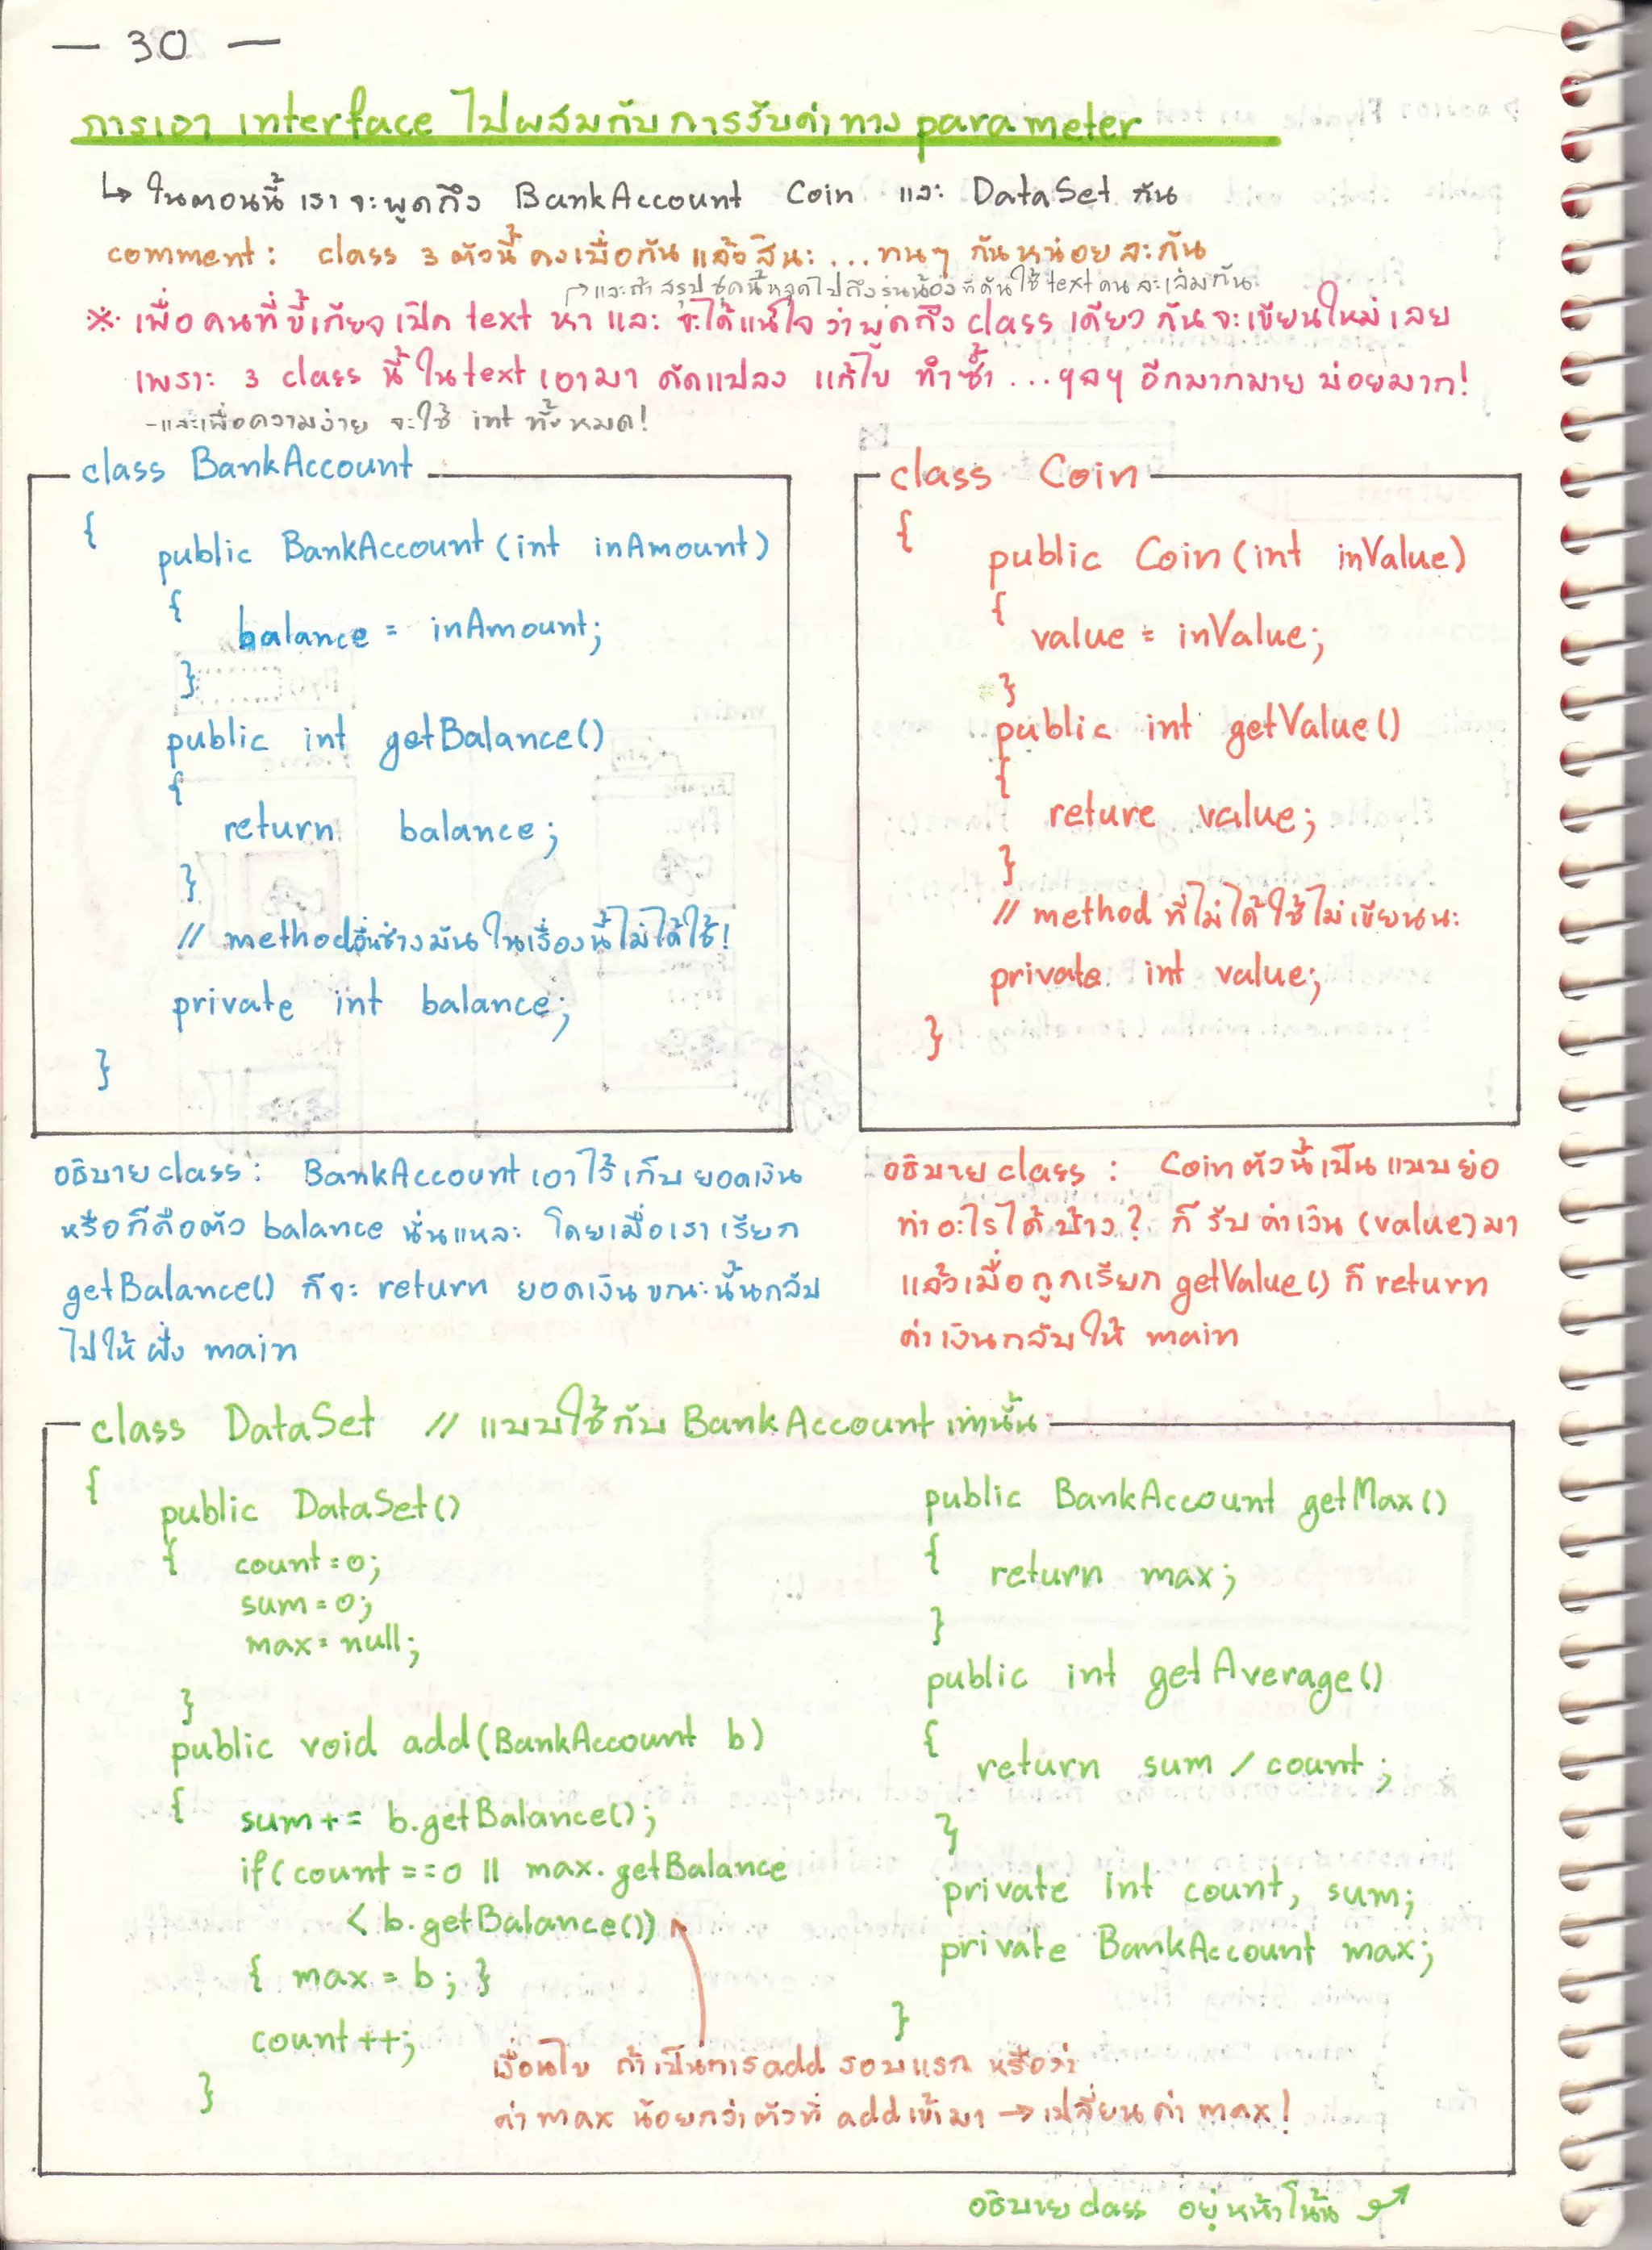 — 30 —
การเอา interface ไปผสมกับการรับค่าทาง parameter
↳ ในตอนนี้ เราจะพูดถึง BankAccount Coin และ DataSet กัน
comment: class 3 ตัวนี้ คงเบื่อกันแล้วสินะ...ทนๆ กันหน่อยละกัน
→และถ้าสรุปชุดนี้หลุดไปถึงรุ่นน้องที่ดันใช้ text คนละเล่มกัน
※ เพื่อคนที่ขี้เกียจเปิด text หา และ จะได้แน่ใจว่าพูดถึง class เดียวกันจะเขียนใหม่เลย
เพราะ 3 class นี้ ใน text เอามา ดัดแปลง แก้ไข ทำซ้ำ ...ฯลฯ อีกมากมาย บ่อยมาก!
-และเพื่อความง่าย จะใช้ int ทั้งหมด!
class BankAccount
{
public BankAccount(int inAmount)
{
balance = inAmount;
}
public int getBalance()
{
return balance;
}
// methodอื่นช่างมัน ในเรื่องนี้ไม่ได้ใช้!
private int balance;
}
class Coin
{
public Coin(int inValue)
{
value = inValue;
}
public int getValue()
{
reture value;
}
// method ที่ไม่ได้ใช้ไม่เขียนนะ
private int value;
}
อธิบาย class: BankAccount เอาไว้เก็บยอดเงิน
หรือก็คือตัว balance นั่นแหละ โดยเมื่อเราเรียก
getBalance() ก็จะ return ยอดเงินขณะนั้นกลับ
ไปให้ ฝั่ง main
อธิบาย class : Coin ตัวนี้เป็นแบบย่อ
ทำอะไรได้บ้าง? ก็ รับค่าเงิน (value) มา
แล้วเมื่อถูกเรียก getValue() ก็ return
ค่าเงินกลับให้ main
class DataSet // แบบใช้กับ BankAccount เท่านั้น
{
public DataSet()
{ count=0;
sum=0;
max=null;
}
public void add(BankAccount b)
{ sum+= b.getBalance();
if(count==0 || max.getBalance
< b.getBalance())
{ max = b; }
count++;
}
public BankAccount getMax()
{ return max;
}
public int getAverage()
{
return sum / count ;
}
private int count, sum;
private BankAccount max;
}
เงื่อนไข ถ้าเป็นการadd รอบแรก หรือว่า
ค่า max น้อยกว่าตัวที่ addเข้ามา → เปลี่ยนค่า max!
อธิบาย class อยู่หน้าโน้น